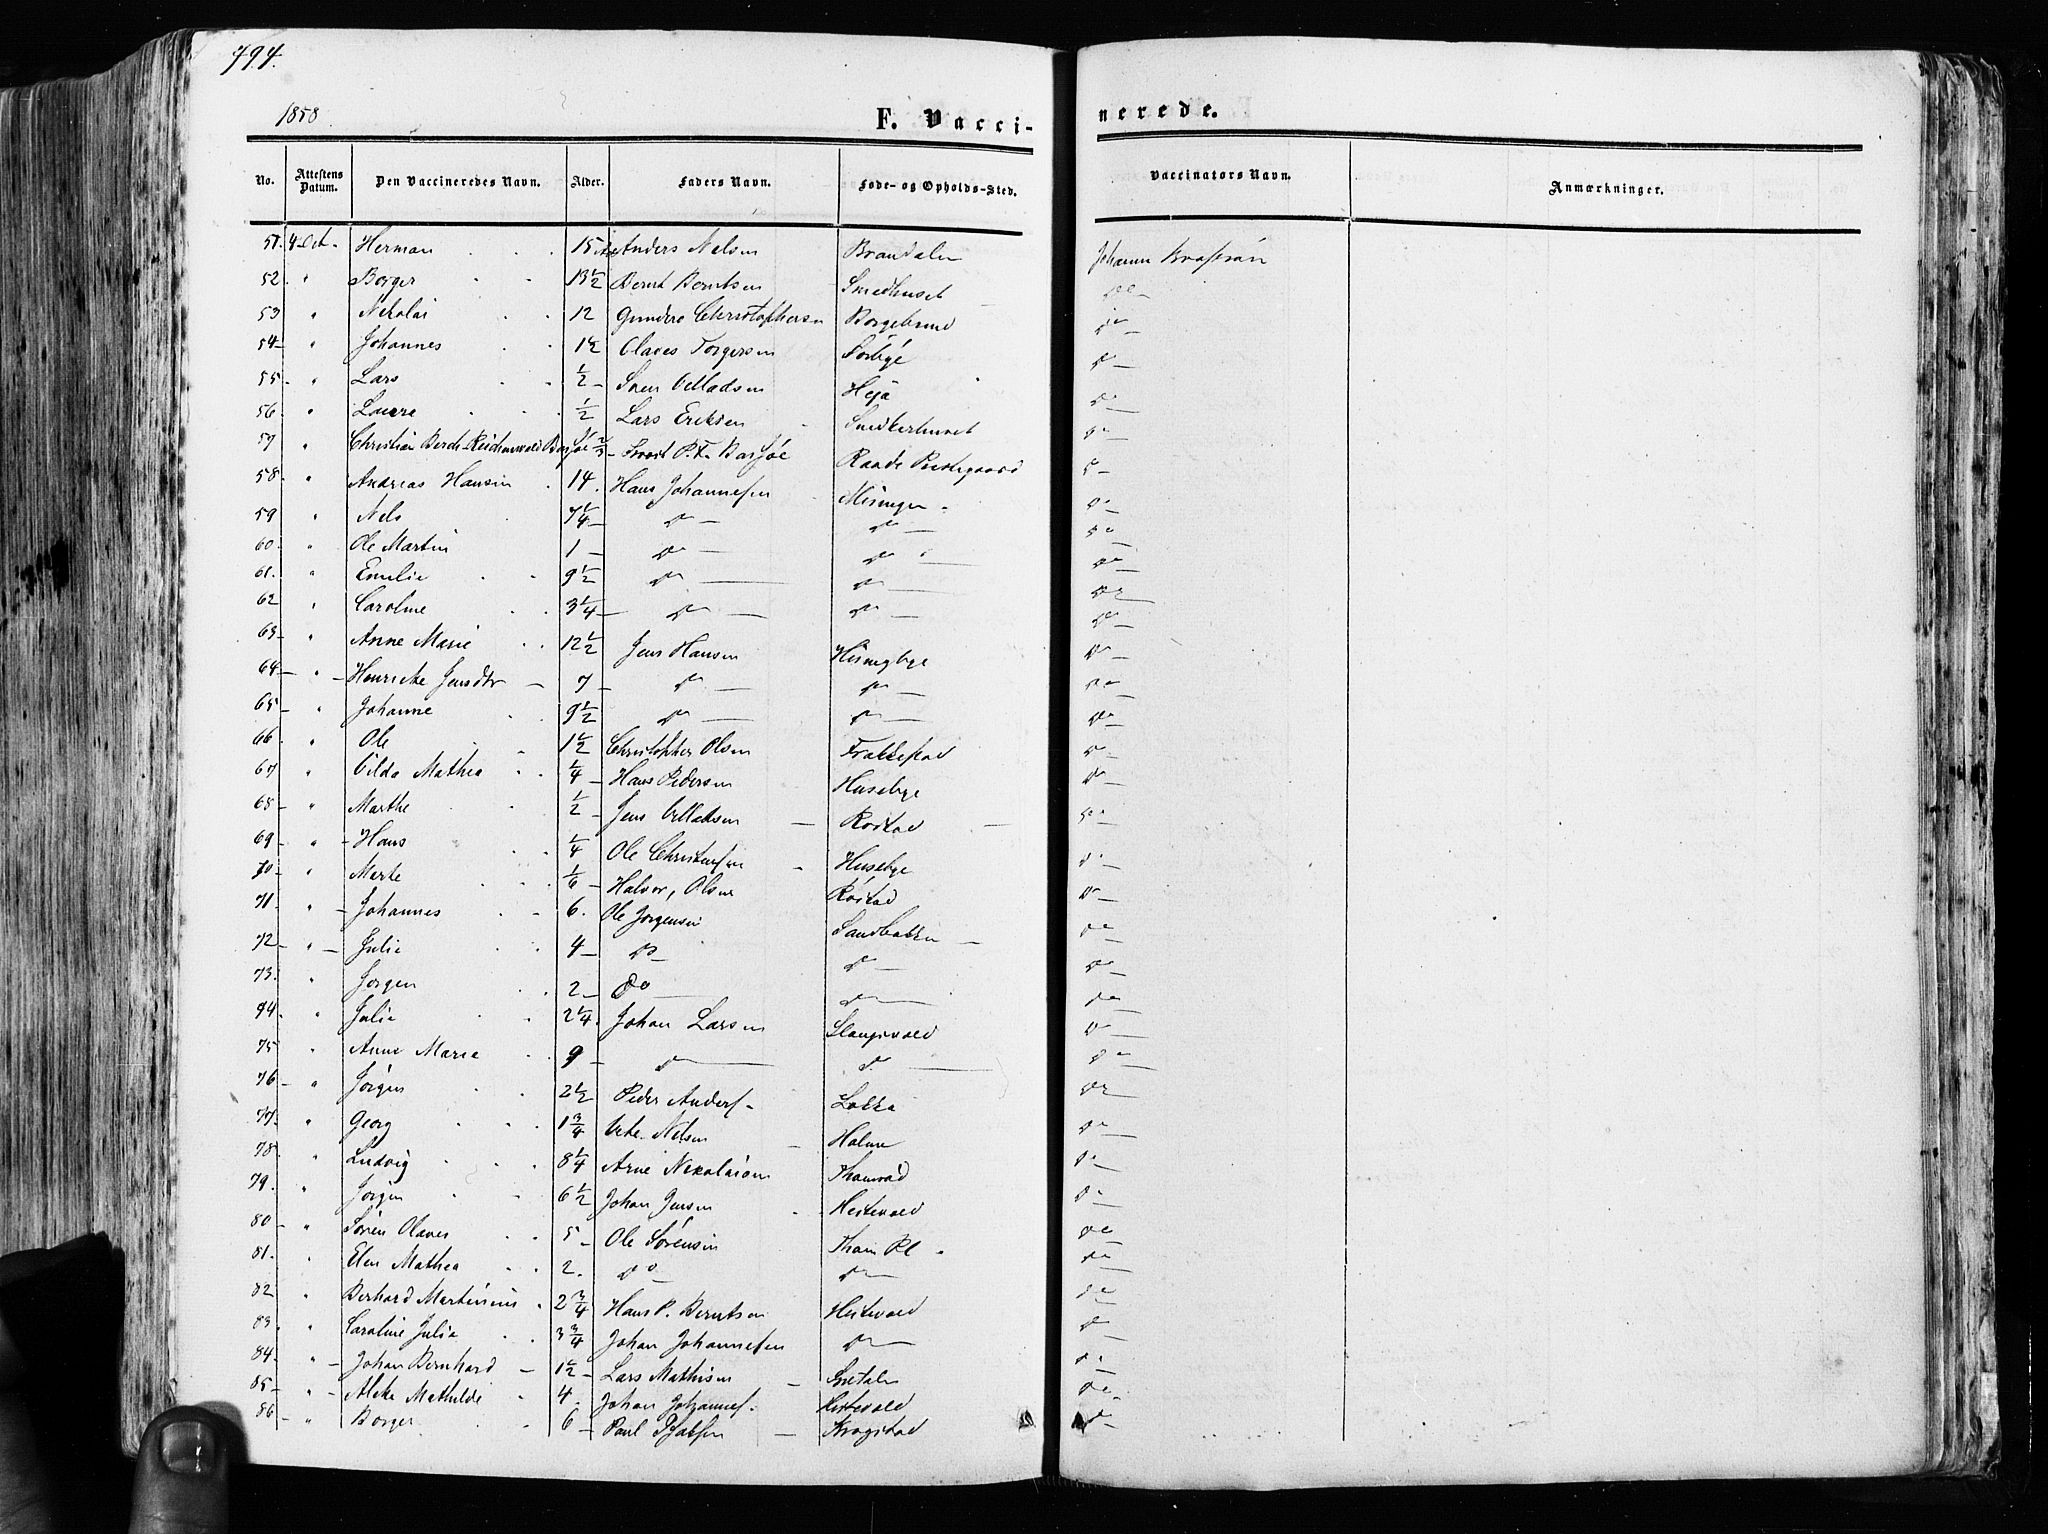 494.
1858
F. Vacci-
nerede.
No. Attestens Datum. Den Vaccineredes Navn. Alder. Faders Navn. Føde- og Opholds-Sted. Vaccinators Navn. Anmærkninger.
51. 4 Oct - Herman 15 Anders Nelsen Brandalen Johann
52. " Borger 13 1/2 Bernt Berntsen Smedhuset do
53 " Nikolai 12 Gunder Christophersen Borgebund do
54 " Johannes 1 1/2 Olaves Torgersen Sørbye do
55 - " Lars 1/2 - Sven Helladsen Heja do
56 " Laura 1/2 Lars Eriksen Snedkerhuset do
57 " Christian Berch Reichenwald Barføe - P. F. Barføe Raade Prestegaard do
58 " Andreas Hansen 14. Hans Johannesen Missingen do
59 " Nels 7 1/4 - do - do - do
60. " Ole Martin 1 - do - do - do
61. " Emilie 9 1/2 do - do - do
62 " Caroline 3 1/4 - do - do - do
63 - " Anne Marie 12 1/2 Jens Hansen Missingbye do
64 - " - Henricke Jensdtr - 7 - do - do - do
65 - " Johanne 9 1/2 do - do - do
66 " Ole 1 1/2 Christopher Olsen Frakkestad do
67 " Mathea 1/4 - Hans Pedersen Husebye do
68 - " Marthe 1/2 Jens - Rostad - do
69 - " - Hans 1/4 Ole Christensen - Husebye do
70 - " Marte 1/6 - Halvor Olsen Rostad do
71. " - Johannes 6. Ole Jørgensen Sandbakken - do
72 - " - Julie 4 - do - do - do
73. Jørgen 2 - do - do - do
74 - " Julie 2 1/4. Johan Larsen Slangsvold do
75 " Anne Maria 9 - do - do - do
76 - " Jørgen 2 1/2 Peder Anders. Løkka do
77. " Georg 1 3/4 Nelsen - Holme do
78. " Ludvig 8 1/4 Arne Nikolaisen do
79. " Jørgen 6 1/2 Johan Jensen Hestevold do
80 - " Søren Olaves 5 - Ole Sørensen Thom Pl. do
81. " Elen Mathea 2. do - do - do
82 " Berhard Martinius 2 3/4 Hans P. Berntsen Hestevold do
83. " Caroline Julie 3 3/4 Johan Johannesen do - do
84. " - Johan Bernhard - 1 1/2 Lars Mathisen - do
85 - " - Mathilde 4 Johan Johannes. Hestevold do
86 - " Borger 6 - Paul - Krogstad do